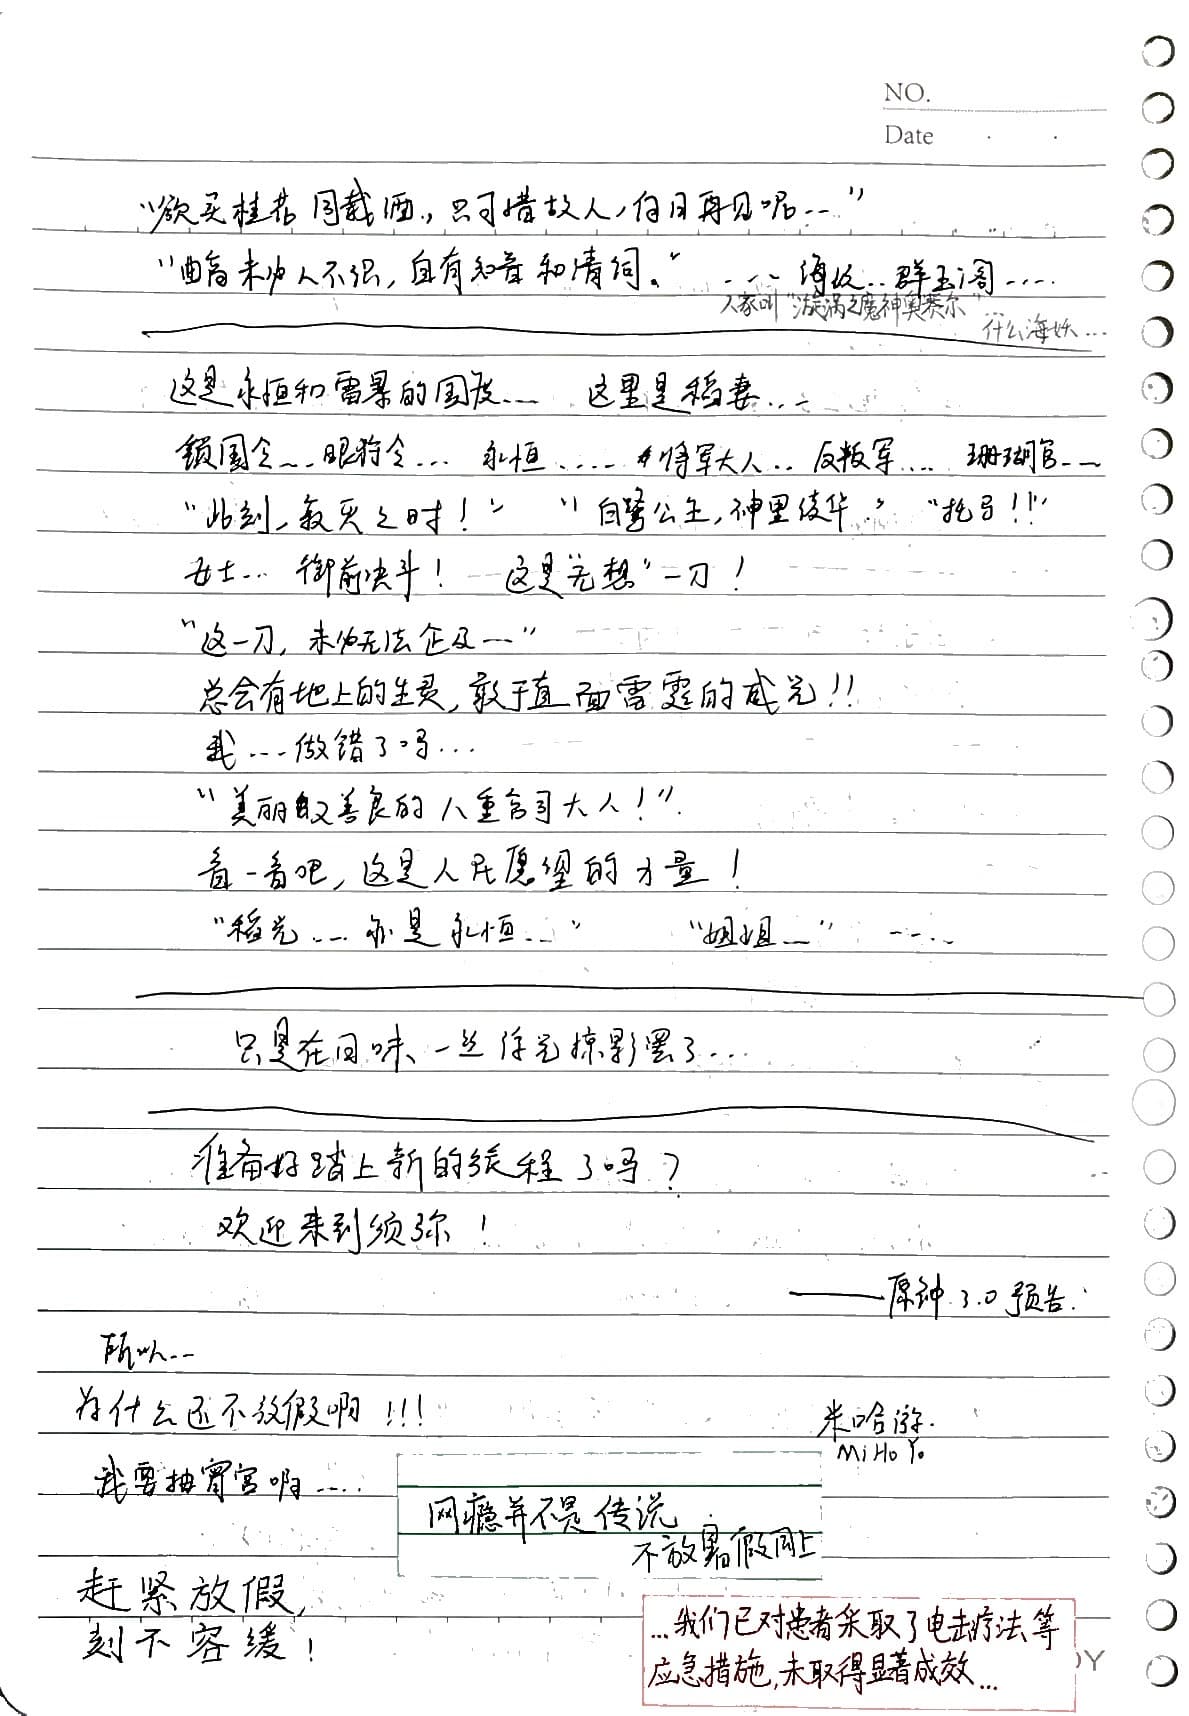 NO.
Date
“欲买桂花同载酒，只可惜故人，何日再见呢……”
“曲高未必人不识，自有知音和清词。” …… 海妖…群玉阁……
人家叫“漩涡之魔神奥赛尔”…
什么海妖…
这是永恒和雷暴的国度…… 这里是稻妻……
锁国令…… 眼狩令…… 永恒…… 将军大人… 反叛军…… 珊瑚宫……
“此刻，寂灭之时！” “白鹭公主，神里绫华” “托马！！”
女士… 御前决斗！ 这是“无想”一刀！
“这一刀，未必无法企及……”
总会有地上的生灵，敢于直面雷霆的威光！！
我……做错了吗…
“美丽又善良的八重宫司大人！”
看一看吧，这是人民愿望的力量！
“稻光…… 亦是永恒……” “姐姐……” ……
只是在回味、一丝浮光掠影罢了…
准备好踏上新的旅程了吗？
欢迎来到须弥！
——原神 3.0 预告.
所以……
为什么还不放假啊！！！
米哈游.
MiHoYo
我要抽宵宫啊……
网瘾并不是传说
不放暑假同上
赶紧放假，
刻不容缓！
…我们已对患者采取了电击疗法等
应急措施，未取得显著成效…